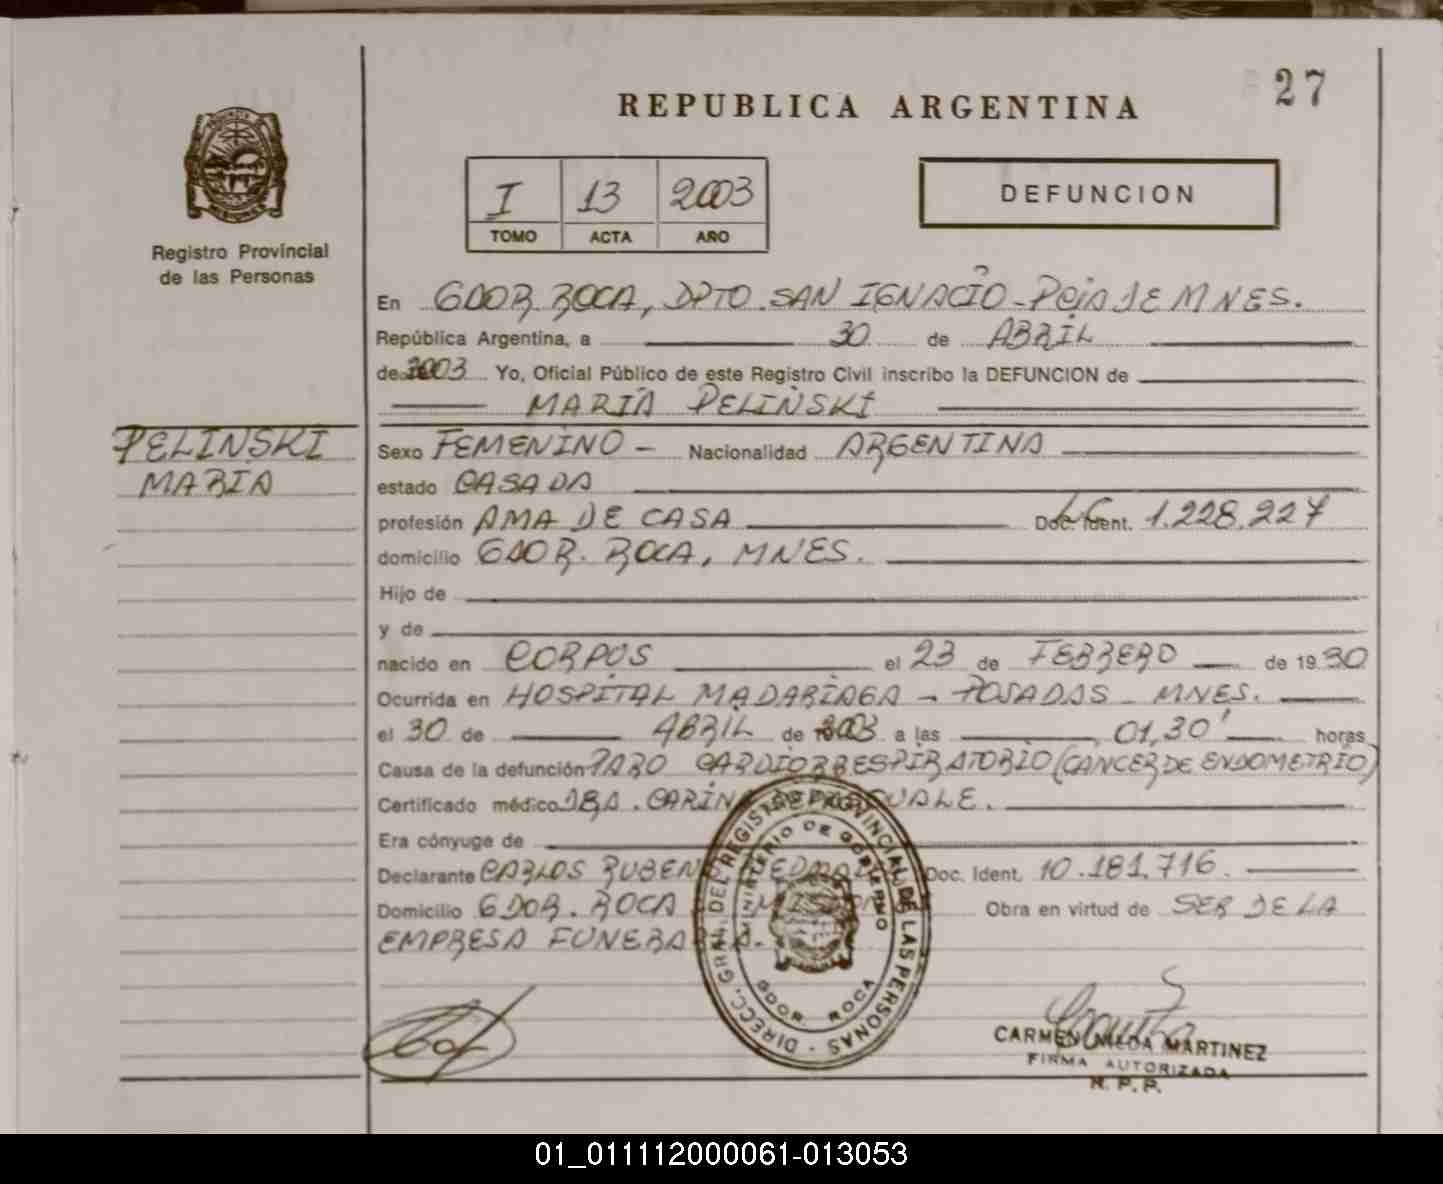 27
REPUBLICA ARGENTINA
I 13 2003
TOMO ACTA AÑO
DEFUNCION
Registro Provincial
de las Personas
En GDOR. ROCA, DPTO. SAN IGNACIO - PCIA DE MNES.
República Argentina, a 30 de ABRIL
de 2003 Yo, Oficial Público de este Registro Civil inscribo la DEFUNCION de
MARIA PELINSKI
PELINSKI
MARIA
Sexo FEMENINO - Nacionalidad ARGENTINA
estado CASADA
profesión AMA DE CASA Doc. Ident. LC 1.228.227
domicilio GDOR. ROCA, MNES.
Hijo de
y de
nacido en CORPUS el 23 de FEBRERO de 19 30
Ocurrida en HOSPITAL MADARIAGA - POSADAS - MNES.
el 30 de ABRIL de 2003 a las 01,30' horas
Causa de la defunción PARO CARDIORRESPIRATORIO (CANCER DE ENDOMETRIO)
Certificado médico DRA. CARINA
Era cónyuge de
Declarante CARLOS RUBEN Doc. Ident. 10.181.716.
Domicilio GDOR. ROCA Obra en virtud de SER DE LA
EMPRESA FUNERARIA.
DIRECC. GRAL. DEL REGISTRO PROVINCIAL DE LAS PERSONAS
MINISTERIO DE GOBIERNO
GDOR. ROCA
CARMEN MARTINEZ
FIRMA AUTORIZADA
R. P. P.
01_011112000061-013053